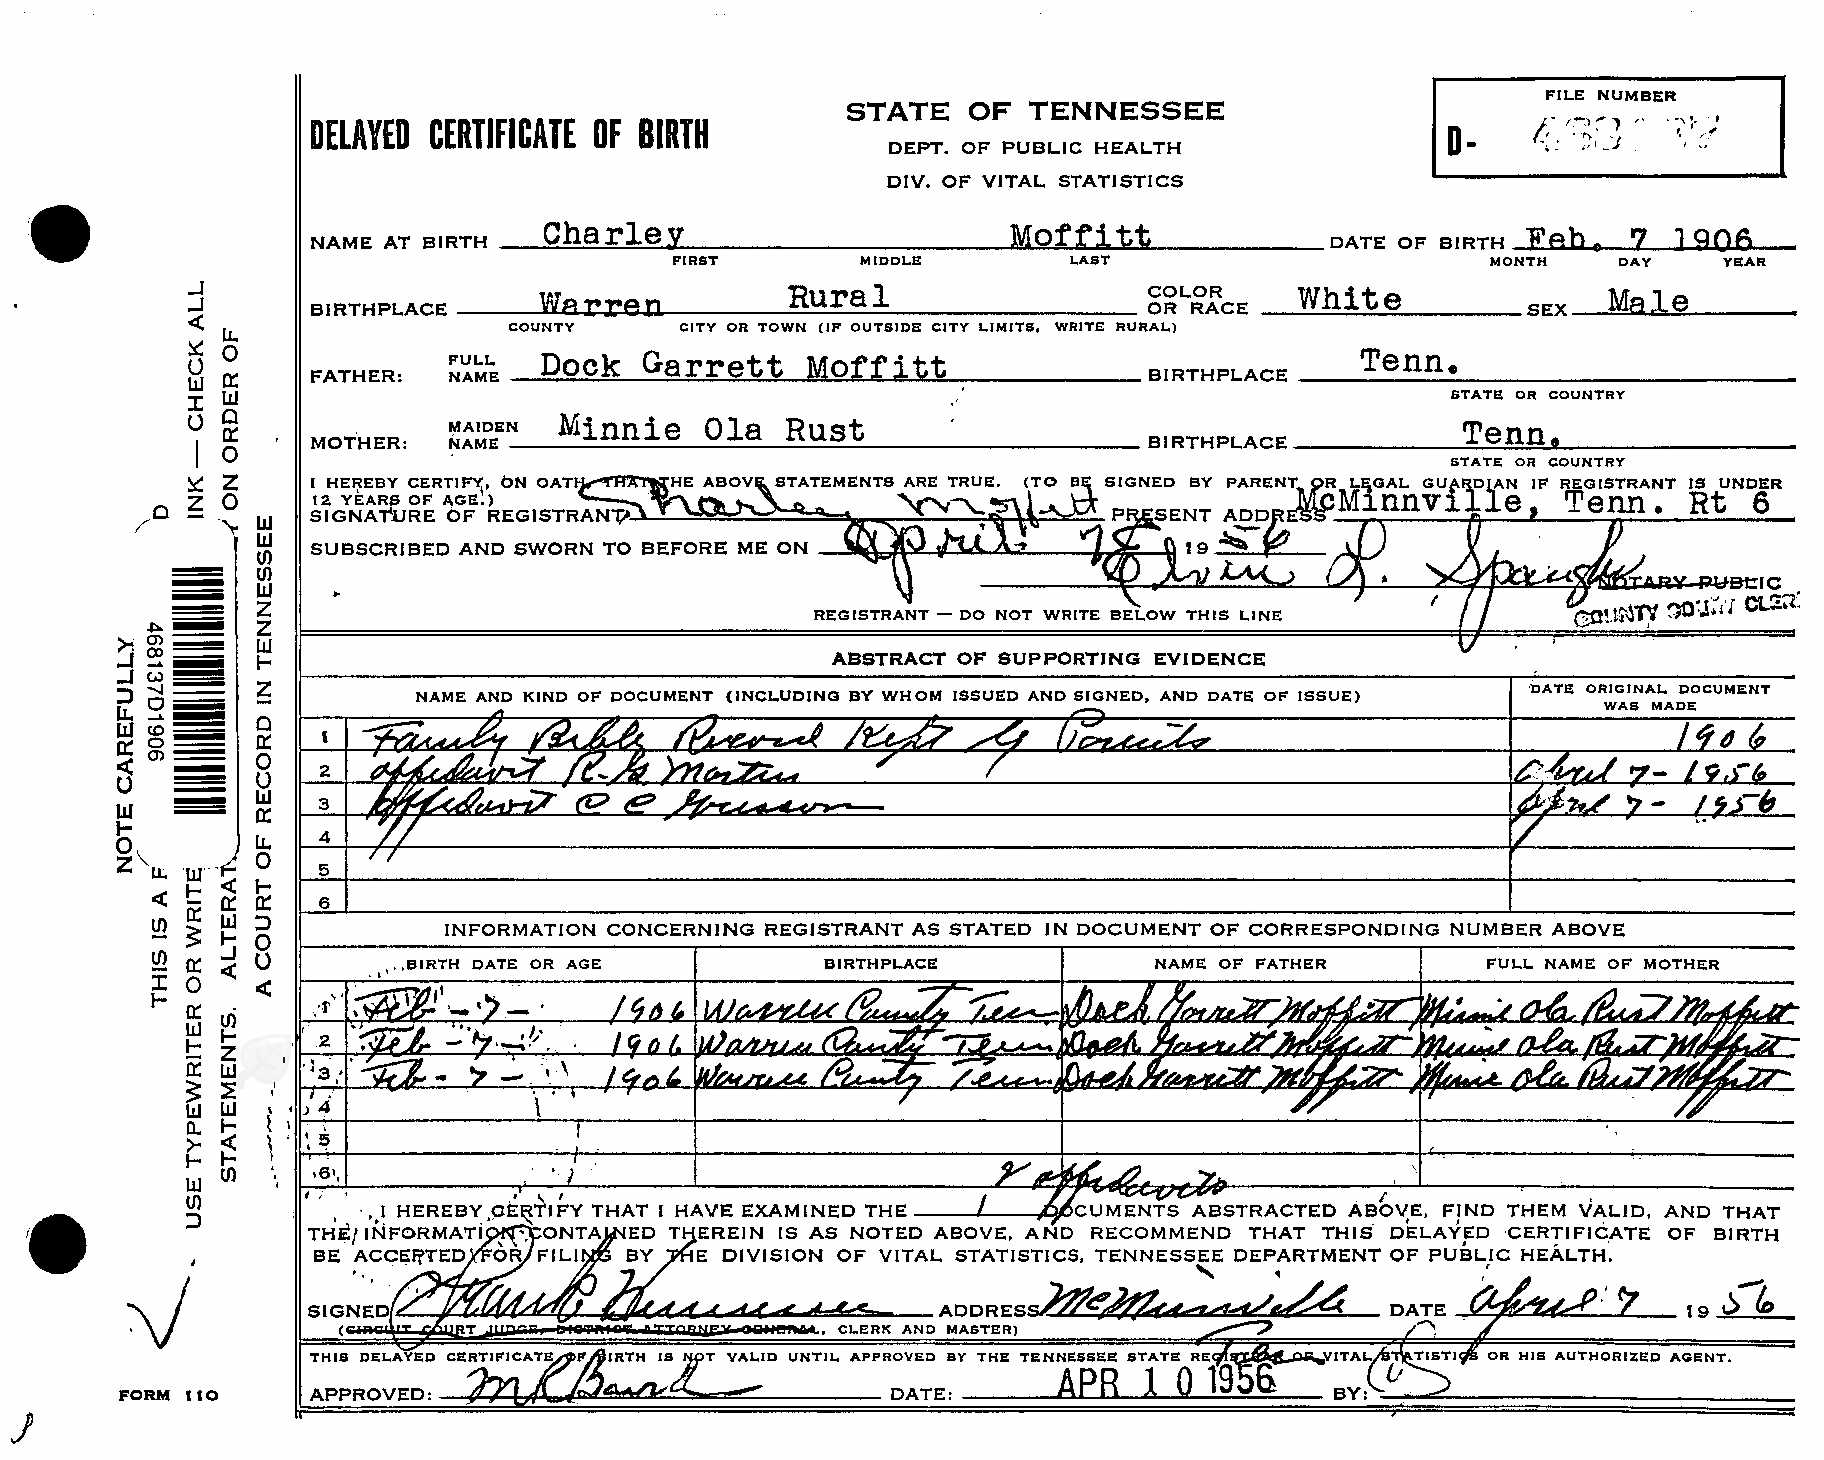 STATE OF TENNESSEE
DELAYED CERTIFICATE OF BIRTH
DEPT. OF PUBLIC HEALTH
DIV. OF VITAL STATISTICS
FILE NUMBER
D-
NAME AT BIRTH Charley Moffitt DATE OF BIRTH Feb. 7 1906
FIRST MIDDLE LAST MONTH DAY YEAR
BIRTHPLACE Warren Rural COLOR OR RACE White SEX Male
COUNTY CITY OR TOWN (IF OUTSIDE CITY LIMITS, WRITE RURAL)
FATHER: FULL NAME Dock Garrett Moffitt BIRTHPLACE Tenn.
STATE OR COUNTRY
MOTHER: MAIDEN NAME Minnie Ola Rust BIRTHPLACE Tenn.
STATE OR COUNTRY
I HEREBY CERTIFY, ON OATH, THAT THE ABOVE STATEMENTS ARE TRUE. (TO BE SIGNED BY PARENT OR LEGAL GUARDIAN IF REGISTRANT IS UNDER
12 YEARS OF AGE.)
SIGNATURE OF REGISTRANT Charley Moffitt PRESENT ADDRESS McMinnville, Tenn. Rt 6
SUBSCRIBED AND SWORN TO BEFORE ME ON April 7 1956
Elvin L.
NOTARY PUBLIC
COUNTY COURT CLERK
REGISTRANT — DO NOT WRITE BELOW THIS LINE
ABSTRACT OF SUPPORTING EVIDENCE
NAME AND KIND OF DOCUMENT (INCLUDING BY WHOM ISSUED AND SIGNED, AND DATE OF ISSUE) DATE ORIGINAL DOCUMENT WAS MADE
1 Family Bible Record Kept by Parents 1906
2 affidavit Martin April 7- 1956
3 affidavit C C April 7- 1956
4
5
6
INFORMATION CONCERNING REGISTRANT AS STATED IN DOCUMENT OF CORRESPONDING NUMBER ABOVE
BIRTH DATE OR AGE BIRTHPLACE NAME OF FATHER FULL NAME OF MOTHER
1 Feb - 7 - 1906 Warren County Tenn Dock Garrett Moffitt Minnie Ola Rust Moffitt
2 Feb - 7 - 1906 Warren County Tenn Dock Garrett Moffitt Minnie Ola Rust Moffitt
3 Feb - 7 - 1906 Warren County Tenn Dock Garrett Moffitt Minnie Ola Rust Moffitt
4
5
6
2 affidavits
I HEREBY CERTIFY THAT I HAVE EXAMINED THE 1 DOCUMENTS ABSTRACTED ABOVE, FIND THEM VALID, AND THAT
THE INFORMATION CONTAINED THEREIN IS AS NOTED ABOVE, AND RECOMMEND THAT THIS DELAYED CERTIFICATE OF BIRTH
BE ACCEPTED FOR FILING BY THE DIVISION OF VITAL STATISTICS, TENNESSEE DEPARTMENT OF PUBLIC HEALTH.
SIGNED Frank ADDRESS McMinnville DATE April 7 1956
(CIRCUIT COURT JUDGE, DISTRICT ATTORNEY GENERAL, CLERK AND MASTER)
Tenn
THIS DELAYED CERTIFICATE OF BIRTH IS NOT VALID UNTIL APPROVED BY THE TENNESSEE STATE REGISTRAR OF VITAL STATISTICS OR HIS AUTHORIZED AGENT.
APPROVED: DATE: APR 10 1956 BY:
FORM 110
NOTE CAREFULLY
THIS IS A F D
USE TYPEWRITER OR WRITE INK — CHECK ALL
STATEMENTS. ALTERAT Y ON ORDER OF
A COURT OF RECORD IN TENNESSEE
468137D1906